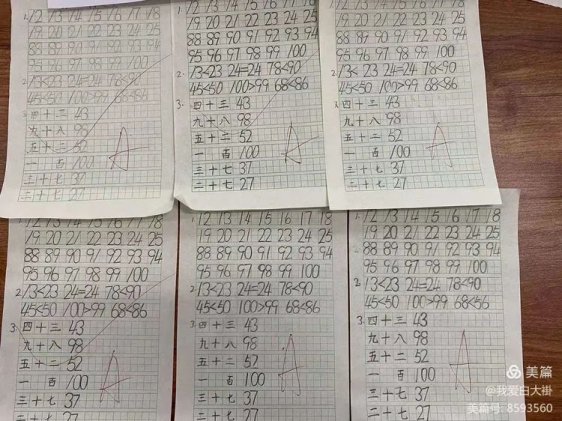 1. 12 13 14 15 16 17 18
19 20 21 22 23 24 25
88 89 90 91 92 93 94
95 96 97 98 99 100
2. 13<23 24=24 78<90
45<50 100>99 68<86
3. 四十三 43
九十八 98
五十二 52
一百 100
三十七 37
二十七 27
A
1. 12 13 14 15 16 17 18
19 20 21 22 23 24 25
88 89 90 91 92 93 94
95 96 97 98 99 100
2. 13<23 24=24 78<90
45<50 100>99 68<86
3. 四十三 43
九十八 98
五十二 52
一百 100
三十七 37
二十七 27
A
12 13 14 15 16 17 18
19 20 21 22 23 24 25
88 89 90 91 92 93 94
95 96 97 98 99 100
2. 13<23 24=24 78<90
45<50 100>99 68<86
3. 四十三 43
九十八 98
五十二 52
一百 100
三十七 37
二十七 27
A
1. 12 13 14 15 16 17 18
19 20 21 22 23 24 25
88 89 90 91 92 93 94
95 96 97 98 99 100
2. 13<23 24=24 78<90
45<50 100>99 68<86
3. 四十三 43
九十八 98
五十二 52
一百 100
三十七 37
二十七 27
A
1. 12 13 14 15 16 17 18
19 20 21 22 23 24 25
88 89 90 91 92 93 94
95 96 97 98 99 100
2. 13<23 24=24 78<90
45<50 100>99 68<86
3. 四十三 43
九十八 98
五十二 52
一百 100
三十七 37
二十七 27
A
1. 12 13 14 15 16 17 18
19 20 21 22 23 24 25
88 89 90 91 92 93 94
95 96 97 98 99 100
2. 13<23 24=24 78<90
45<50 100>99 68<56
3. 四十三 43
九十八 98
五十二 52
一百 100
三十七 37
二十七 27
A
美篇
@我爱白大褂
美篇号: 8593560